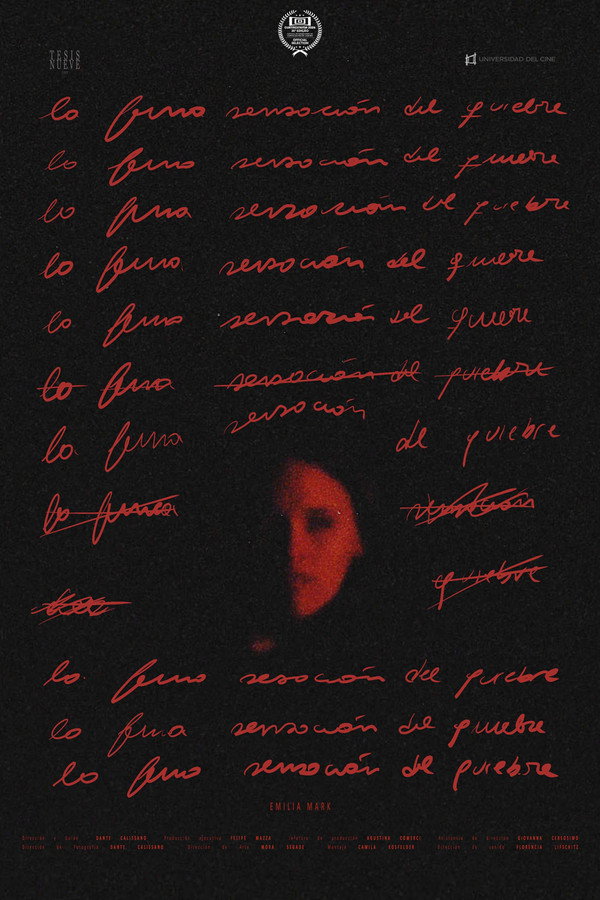 OFFICIAL
SELECTION
TESIS
NUEVE
UNIVERSIDAD DEL CINE
la fina sensación del quiebre
la fina sensación del quiebre
la fina sensación del quiebre
la fina sensación del quiebre
la fina sensación del quiebre
la fina sensación del quiebre
sensación
la fina del quiebre
la fina sensación
quiebre
la fina sensación del quiebre
la fina sensación del quiebre
la fina sensación del quiebre
EMILIA MARK
Dirección y Guión DANTE CALISSANO Producción ejecutiva FELIPE MAZZA Jefatura de producción AGUSTINA COMERCI Asistencia de dirección GIOVANNA CERSOSIMO
Dirección de Fotografía DANTE CALISSANO Dirección de Arte MORA SEGADE Montaje CAMILA GOSFELDER Dirección de sonido FLORENCIA LIFSCHITZ